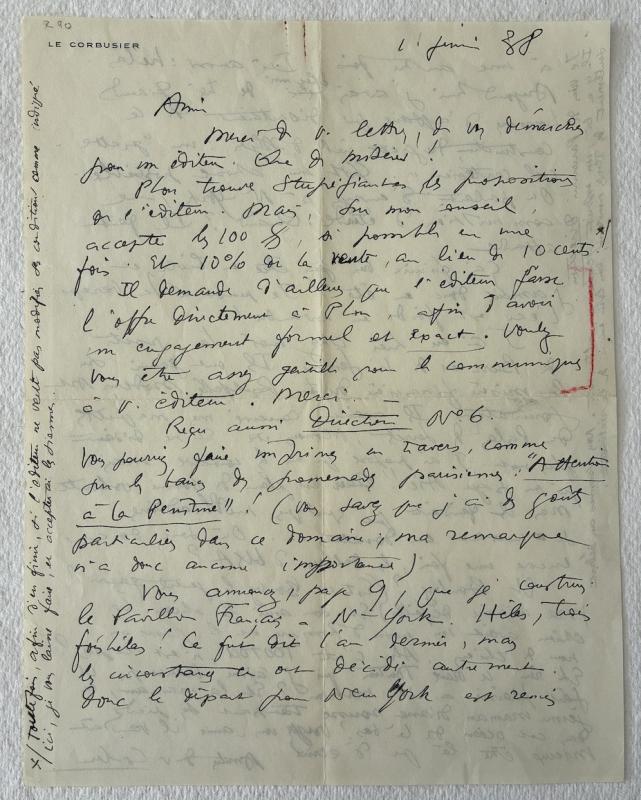 290
LE CORBUSIER
juin 38
Amie
Merci de v. lettre, de vos démarches
pour un éditeur. Que de misères !
Plon trouve stupéfiantes les propositions
de l'éditeur. Mais, sur mon conseil,
accepte les 100 $, si possible en une x/
fois. Et 10% de la vente, au lieu de 10 cents !
Il demande d'ailleurs que l'éditeur fasse
l'offre directement à Plon, afin d'avoir
un engagement formel et exact. Voulez
vous être assez gentille pour le communiquer
à v. éditeur. Merci. —
Reçu aussi Direction N° 6.
Vous pourriez faire imprimer en travers, comme
sur les bancs des promenades parisiennes "Attention
à la Peinture" ! (Vous savez que j'ai des goûts
particuliers dans ce domaine, ma remarque
n'a donc aucune importance)
Vous annoncez, page 9, que je construis
le Pavillon Français à N-York. Hélas, trois
fois hélas ! Ce fut dit l'an dernier, mais
les circonstances en ont décidé autrement.
Donc le départ pour New York est remis
x/ Toutefois, afin d'en finir, si l'éditeur ne veut pas modifier ses conditions comme indiqué
ici, je vous laisse faire, en acceptant les siennes..